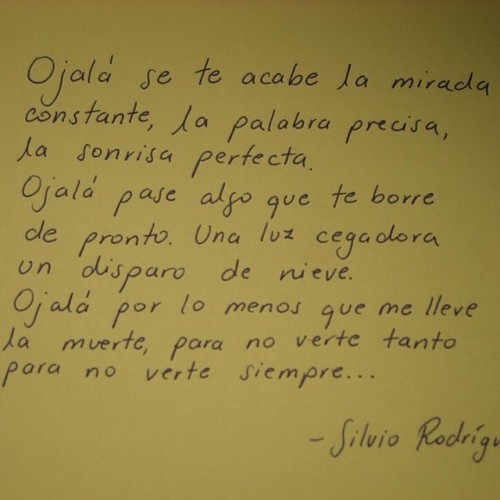 Ojalá se te acabe la mirada
constante, la palabra precisa,
la sonrisa perfecta.
Ojalá pase algo que te borre
de pronto. Una luz cegadora
un disparo de nieve.
Ojalá por lo menos que me lleve
la muerte, para no verte tanto
para no verte siempre...
- Silvio Rodrígu